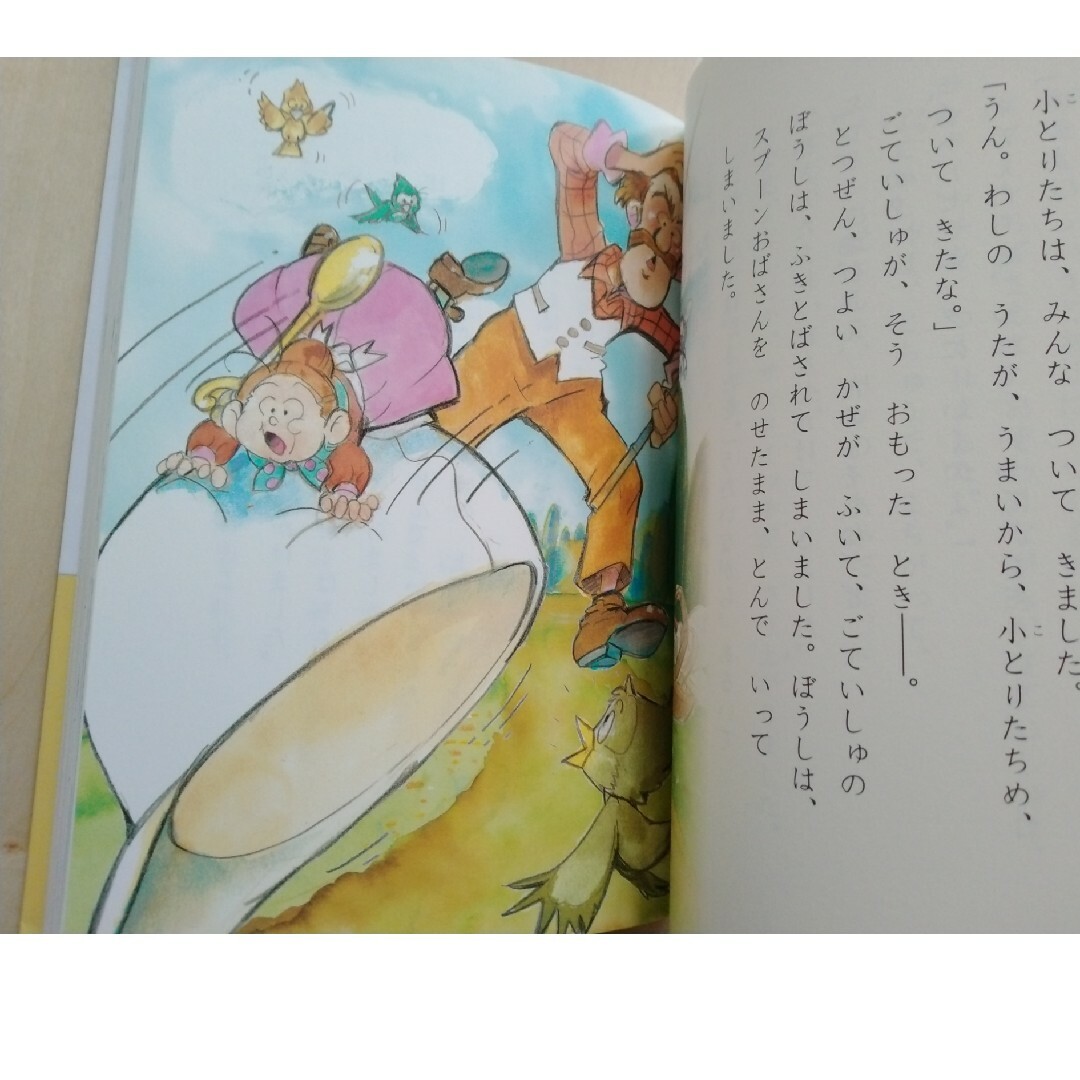 小とりたちは、みんな　ついて　きました。
「うん。わしの　うたが、うまいから、小とりたちめ、
ついて　きたな。」
ごていしゅが、そう　おもった　とき――。
とつぜん、つよい　かぜが　ふいて、ごていしゅの
ぼうしは、ふきとばされて　しまいました。ぼうしは、
スプーンおばさんを　のせたまま、とんで　いって
しまいました。